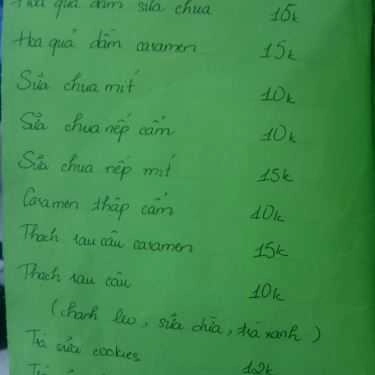 Hoa quả dầm sữa chua 15k
Hoa quả dầm caramen 15k
Sữa chua mít 10k
Sữa chua nếp cẩm 10k
Sữa chua nếp mít 15k
Caramen thập cẩm 10k
Thạch rau câu caramen 15k
Thạch rau câu 10k
(chanh leo, sữa dừa, trà xanh)
Trà sữa cookies 12k